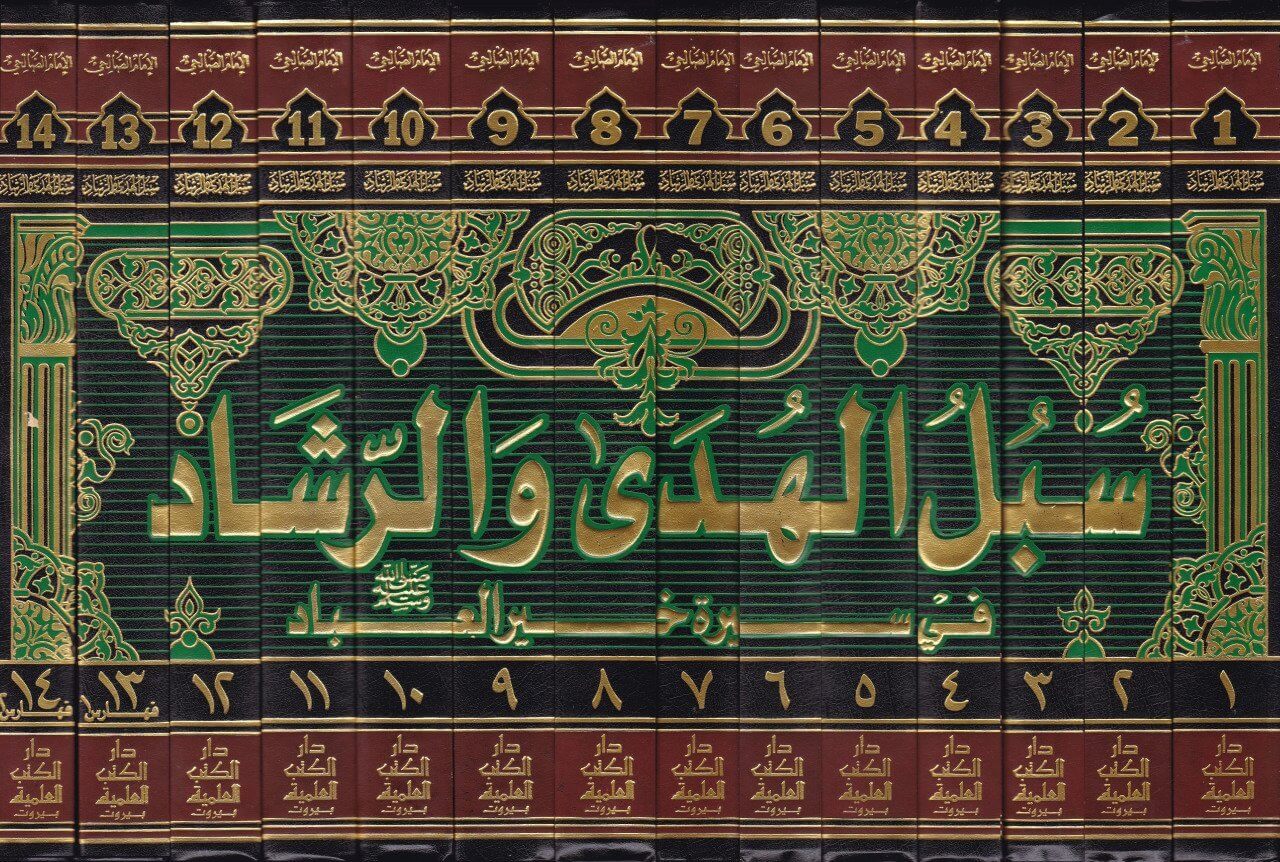 الإمام الصالحي الإمام الصالحي الإمام الصالحي الإمام الصالحي الإمام الصالحي الإمام الصالحي الإمام الصالحي الإمام الصالحي الإمام الصالحي الإمام الصالحي الإمام الصالحي الإمام الصالحي الإمام الصالحي الإمام الصالحي
1 2 3 4 5 6 7 8 9 10 11 12 13 14
سبل الهدى والرشاد سبل الهدى والرشاد سبل الهدى والرشاد سبل الهدى والرشاد سبل الهدى والرشاد سبل الهدى والرشاد سبل الهدى والرشاد سبل الهدى والرشاد سبل الهدى والرشاد سبل الهدى والرشاد سبل الهدى والرشاد سبل الهدى والرشاد سبل الهدى والرشاد سبل الهدى والرشاد
سُبُلُ الهُدَىٰ وَالرَّشَاد
في سيرة خير العباد صلى الله عليه وسلم
١ ٢ ٣ ٤ ٥ ٦ ٧ ٨ ٩ ١٠ ١١ ١٢ ١٣ ١٤
فهارس فهارس
دار دار دار دار دار دار دار دار دار دار دار دار دار دار
الكتب الكتب الكتب الكتب الكتب الكتب الكتب الكتب الكتب الكتب الكتب الكتب الكتب الكتب
العلمية العلمية العلمية العلمية العلمية العلمية العلمية العلمية العلمية العلمية العلمية العلمية العلمية العلمية
بيروت بيروت بيروت بيروت بيروت بيروت بيروت بيروت بيروت بيروت بيروت بيروت بيروت بيروت